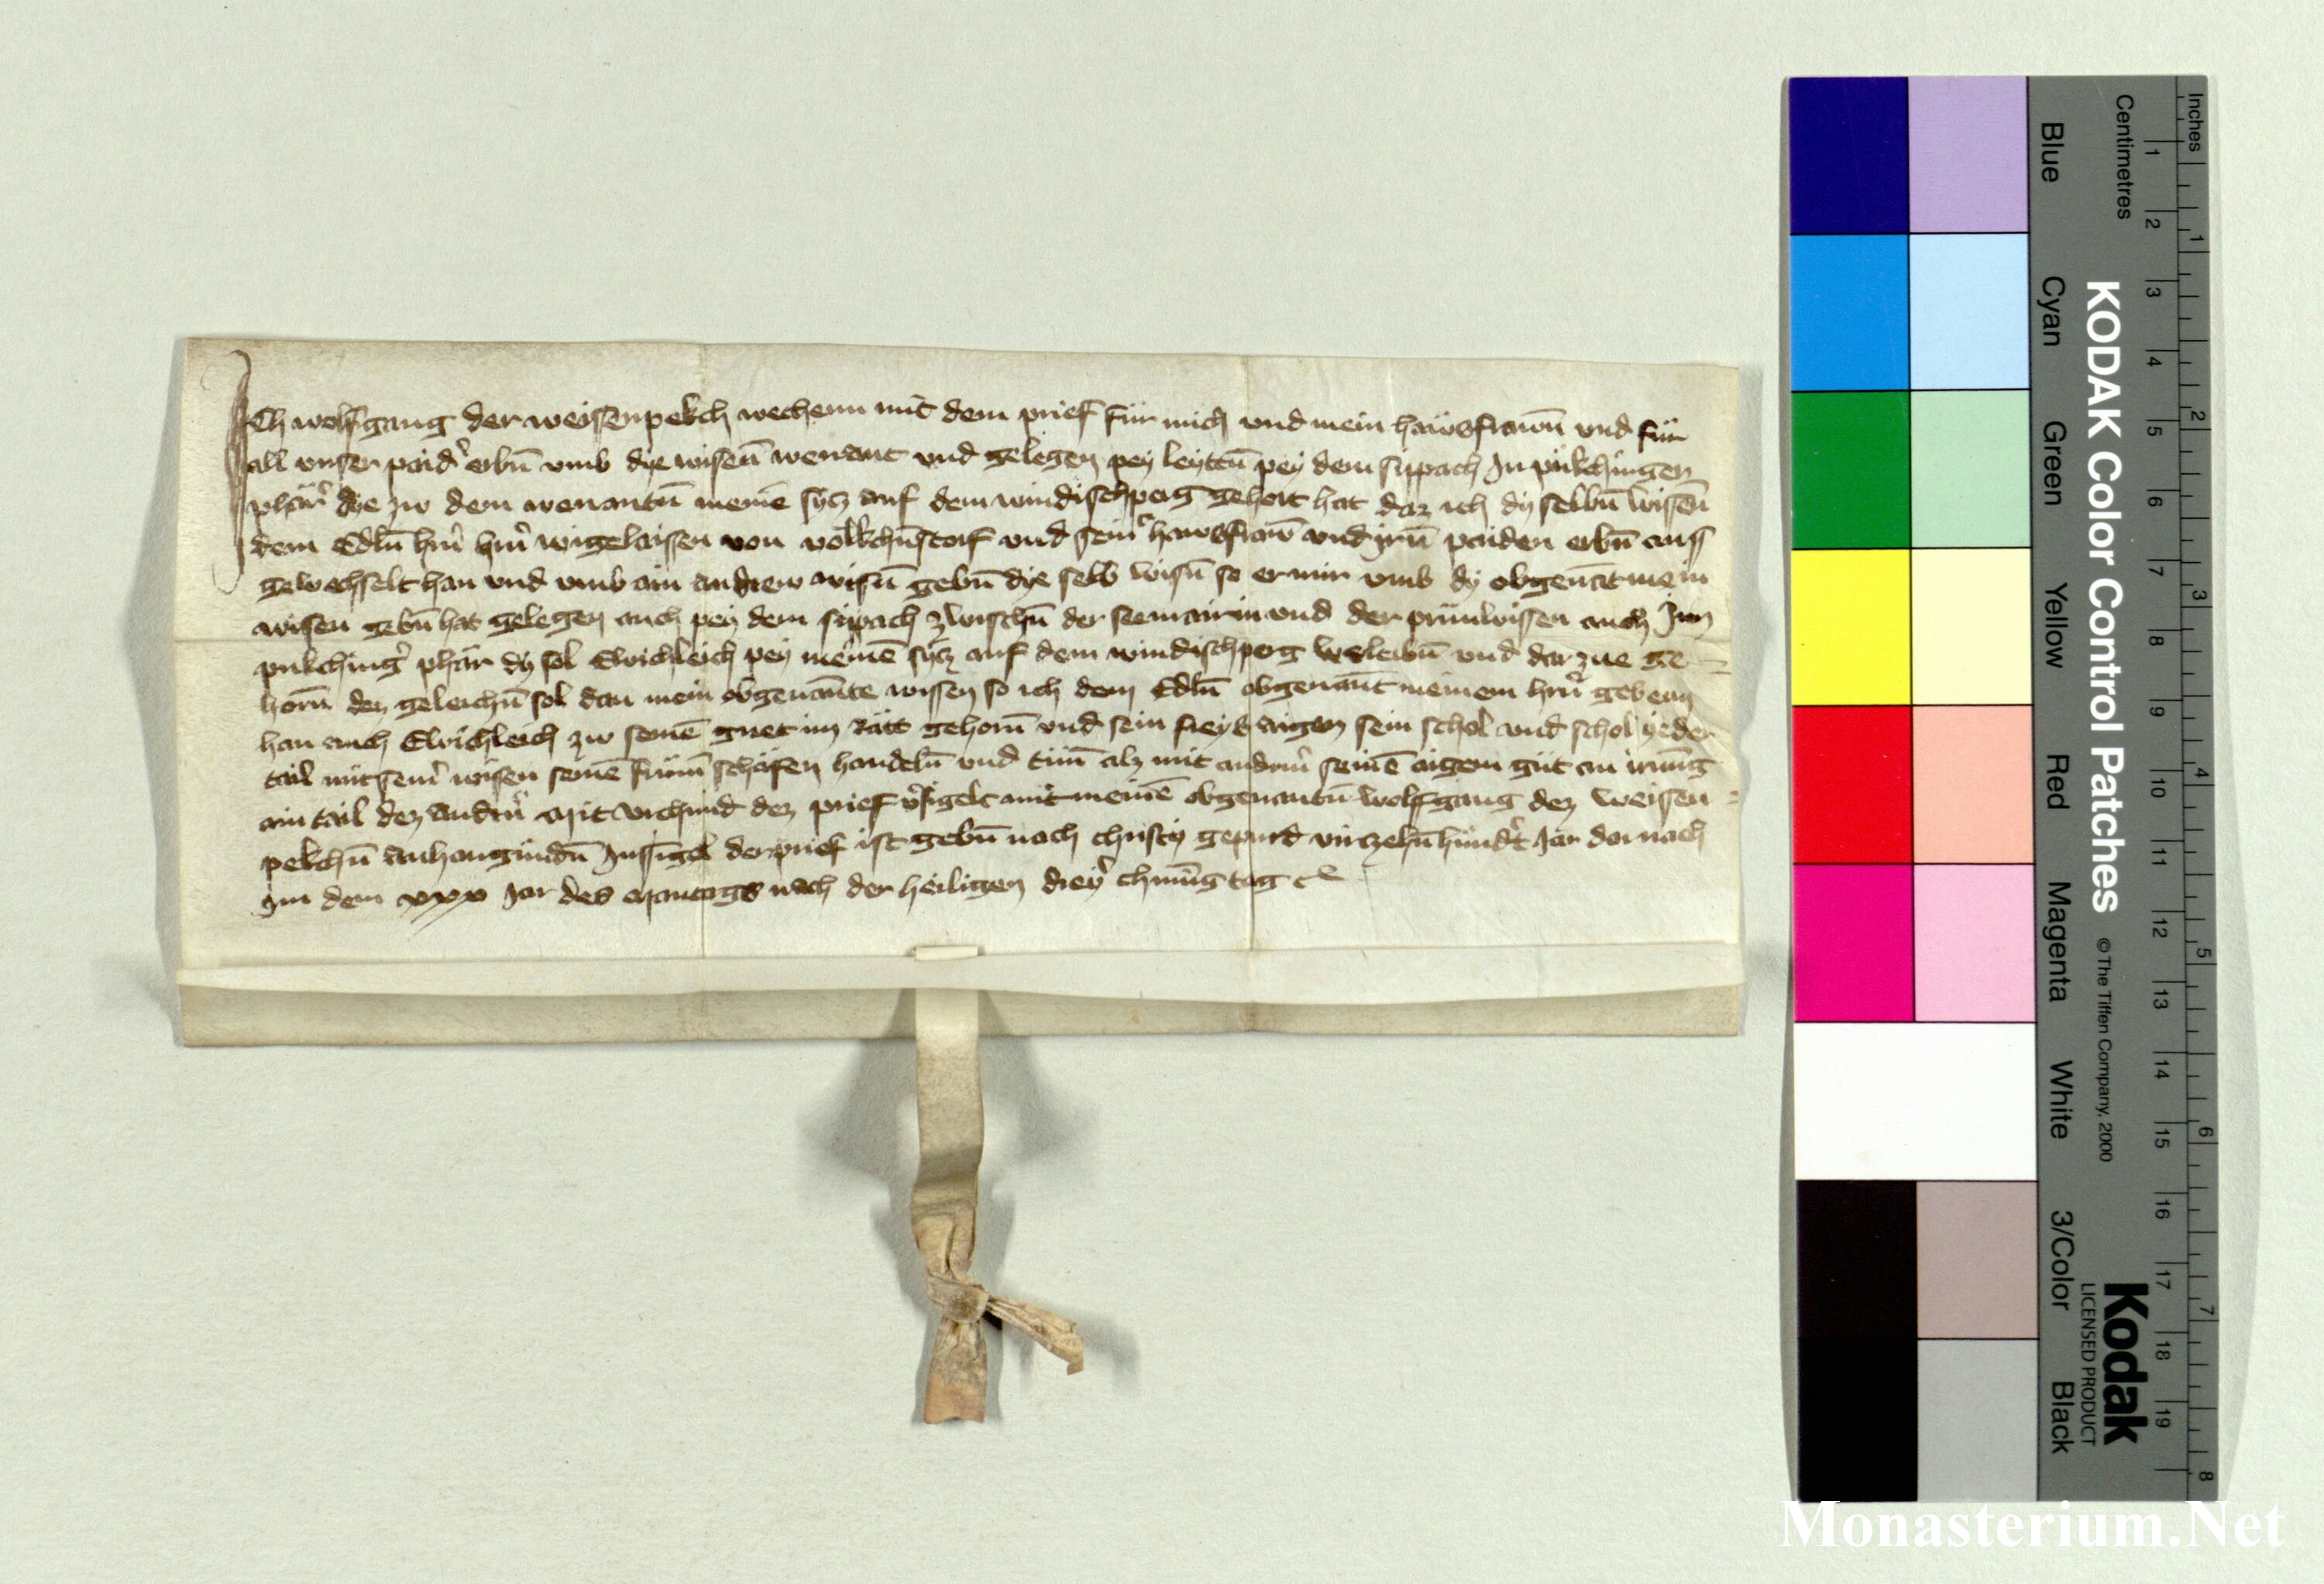 Ich wolfgang der weissenpekch vechenn mit dem prief für mich und mein hawsfrawn̄ und für
all unser paid' erbn̄ umb dye wisen̄ wenant und gelegen pey leyttn̄ pey dem sippach Jn pükchingen
phär' dye zw dem wenantn̄ meinē sycz auf dem windischperg gehort hat daz ich dy selbn̄ wisen̄
dem Edln̄ hn̄ hn̄ wigelaissen von volkchn̄storf und sein' hawsfraw̄ und irn̄ paiden erbn̄ auss
gewechsselt han und umb ain andrew wisn̄ gebn̄ dye selb wisn̄ so er mir umb dy obgenāt mein
wisen gebn̄ hat gelegen auch pey dem sippach zwischn̄ der seemairin und der prünwissen auch Jnn
pukching' phär dy sol Ewichleich pey meinē sycz auf dem windischperg beleibn̄ und dar zue ge
horn̄ dez geleichn̄ sol dan mein obgenān̄te wissen so ich dem Edln̄ obgenan̄t meinem hrn̄ gebenn
han auch Ewichleich zw seinē guet im Rätt gehorn̄ und sein freys aigen sein schol und schol yeder
tail mit sein' wisen seinē frum̄ schäfen handeln̄ und tun̄ alz mit andrn̄ seinē aigem güt an irun̄g
ain tail dez andrn̄ Mit urchund dez prief v'sigelt mit meinē obgenantn̄ wolfgang dez weissen
pekchn̄ anhangūndn̄ Jnsigel der prief ist gebn̄ nach christy gepurd virzehn̄ hundr't Jar dar nach
Jnn dem xxx Jar des Mantags nach der heiligen drey' chunīg tag
Inches
Centimetres
1 2 3 4 5 6 7 8 9 10 11 12 13 14 15 16 17 18 19
1 2 3 4 5 6 7 8
KODAK Color Control Patches
© The Tiffen Company, 2000
Kodak
LICENSED PRODUCT
Blue
Cyan
Green
Yellow
Red
Magenta
White
3/Color
Black
Monasterium.Net